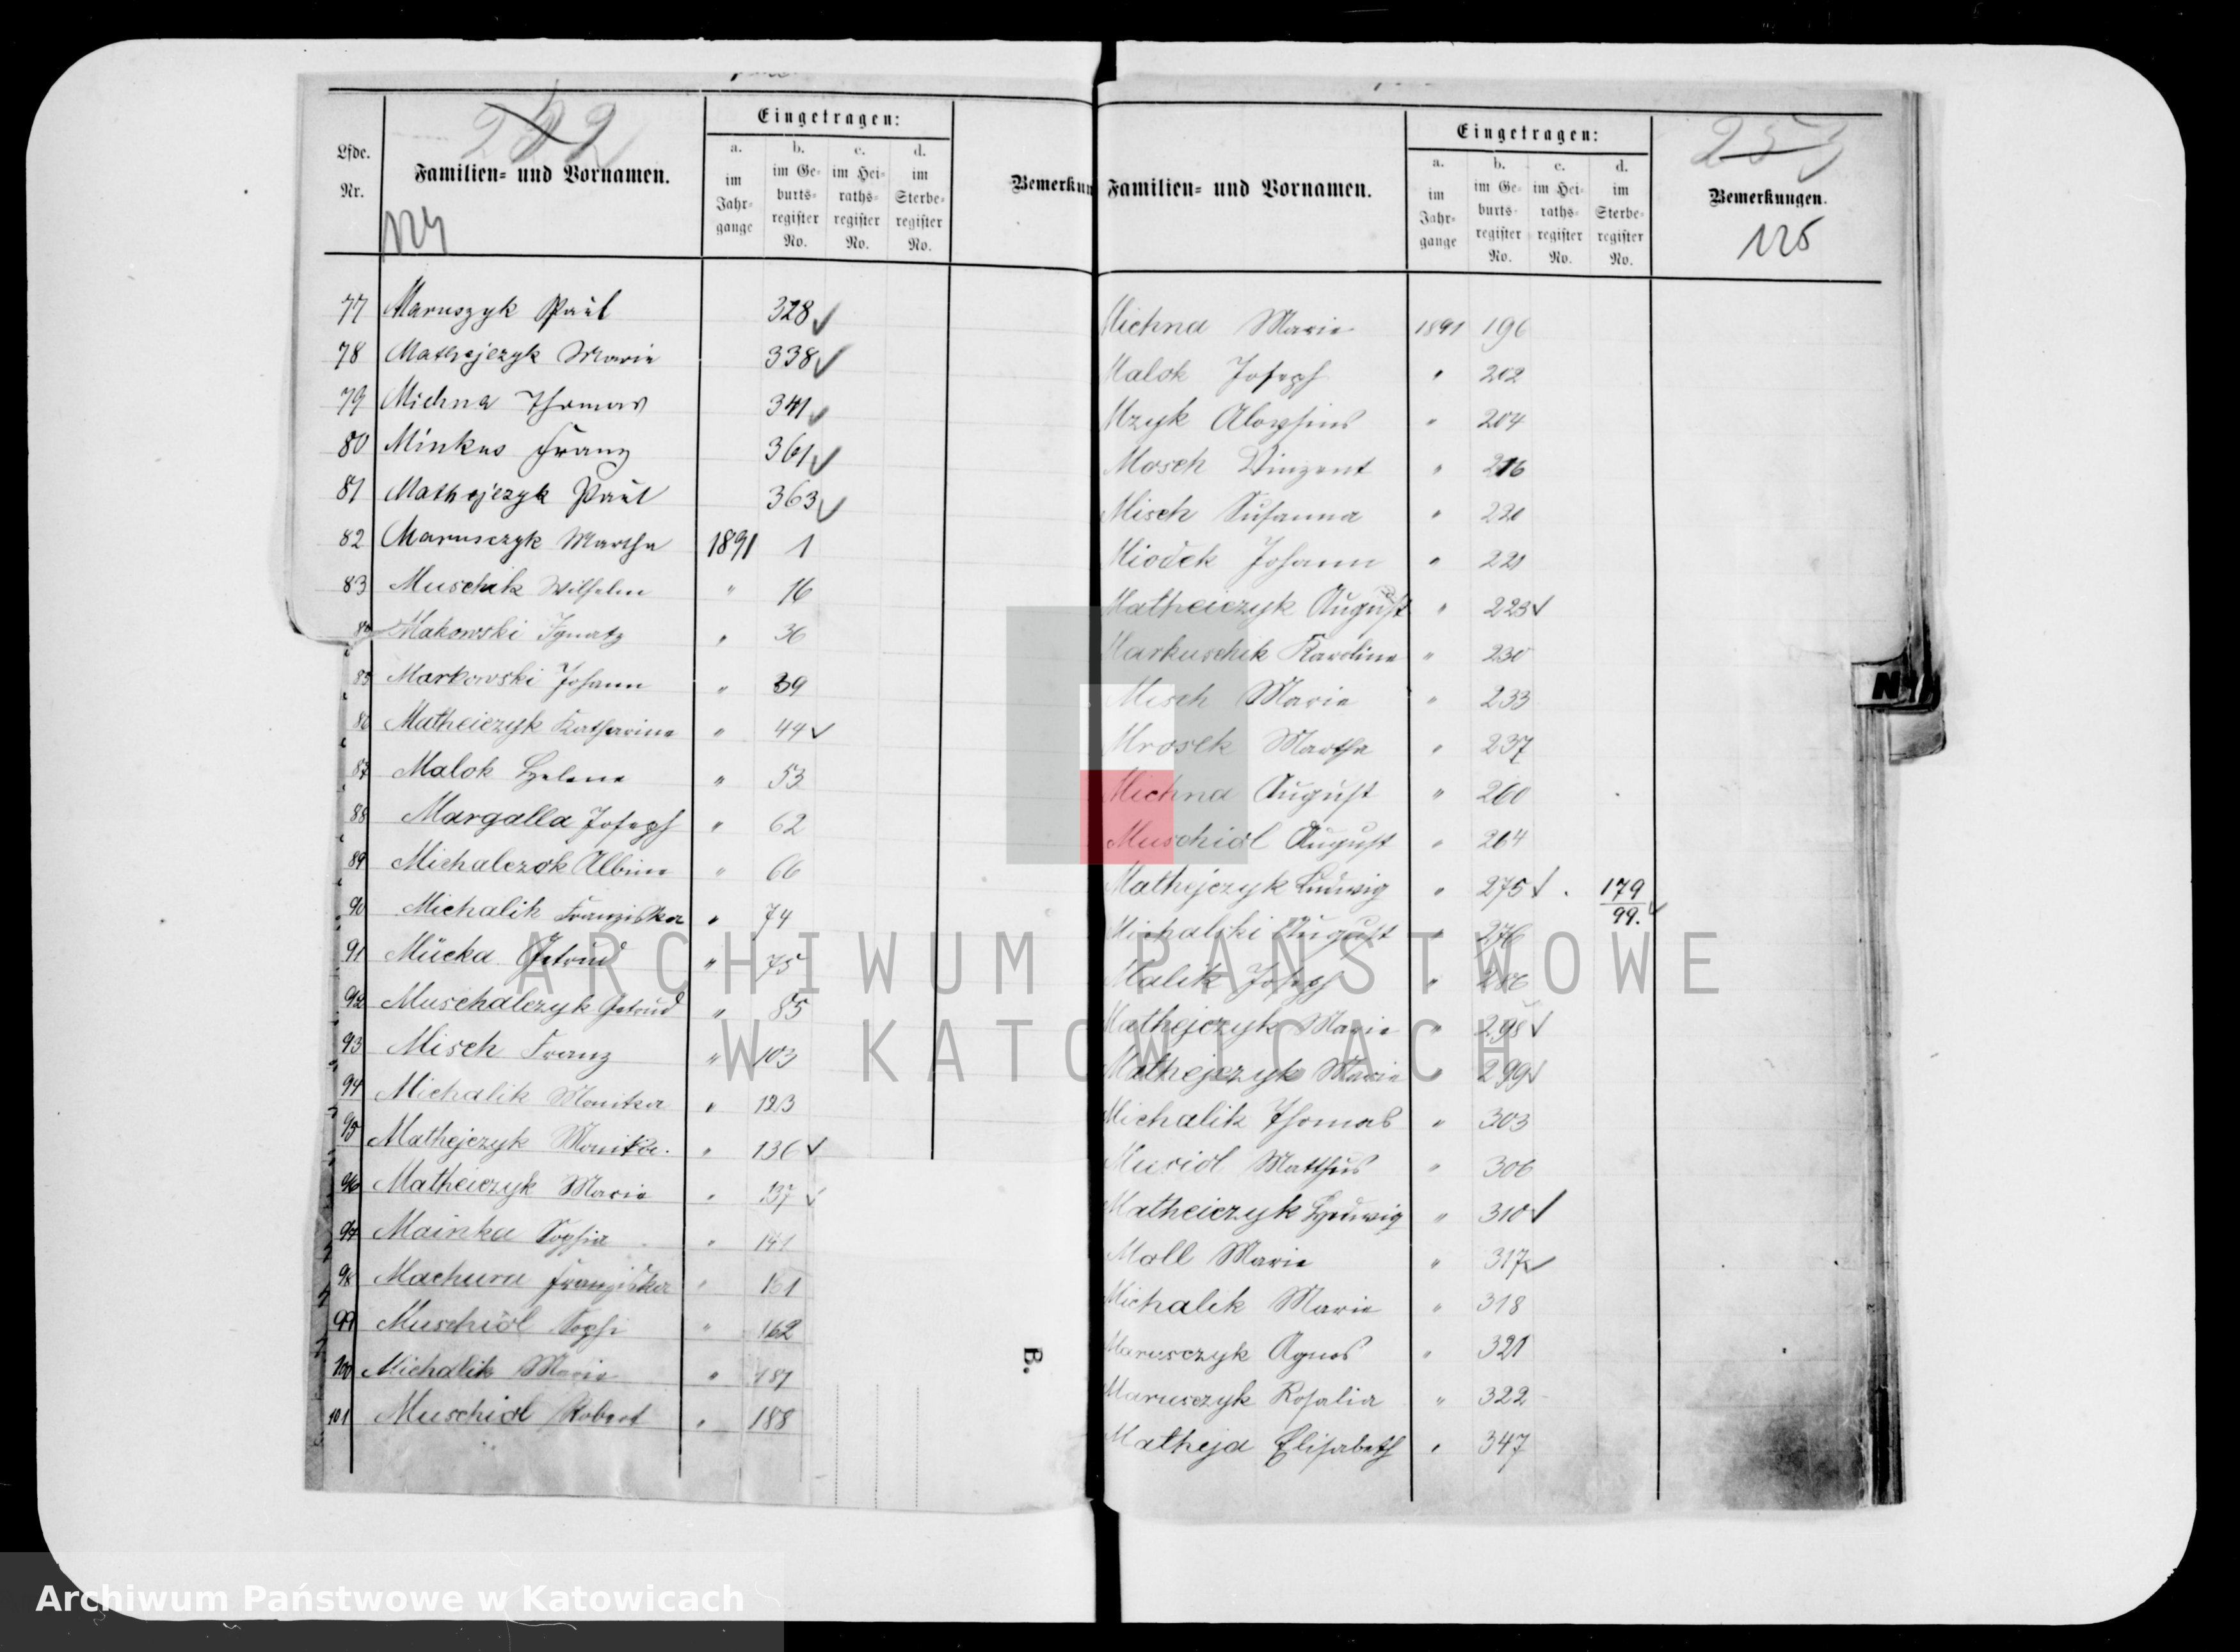 252
Lfde.
Nr.
Familien- und Vornamen.
124
Eingetragen:
a. im Jahrgange
b. im Geburtsregister No.
c. im Heirathsregister No.
d. im Sterberegister No.
Bemerkun
77 Maruszyk Paul 328 ✓
78 Mathejczyk Marie 338 ✓
79 Michna Thomas 341 ✓
80 Minkus Franz 361 ✓
81 Mathejczyk Paul 363 ✓
82 Marusczyk Martha 1891 1
83 Muschik Wilhelm " 16
84 Makowski Ignatz " 36
85 Markowski Johann " 39
86 Matheiczyk Katharina " 44 ✓
87 Malok Helene " 53
88 Margalla Joseph " 62
89 Michalczok Albine " 66
90 Michalik Franziska " 74
91 Mücka Getrud " 75
92 Muschalczyk Getrud " 85
93 Misch Franz " 103
94 Michalik Monika " 123
95 Mathejczyk Monika. " 136 ✓
96 Matheiczyk Marie " 137 ✓
97 Mainka Sophia " 141
98 Machura Franziska " 161
99 Muschiol Sophi " 162
100 Michalik Marie " 187
101 Muschiol Robert " 188
B.
Familien- und Vornamen.
Eingetragen:
a. im Jahrgange
b. im Geburtsregister No.
c. im Heirathsregister No.
d. im Sterberegister No.
253
Bemerkungen.
125
Michna Marie 1891 196
Malok Joseph " 202
Mzyk Aloysius " 204
Mosch Vinzent " 216
Misch Susanna " 220
Miodek Johann " 221
Matheiczyk August " 223 ✓
Markuschik Karoline " 230
Misch Marie " 233
Mrosek Martha " 237
Michna August " 260
Muschiol August " 264
Mathejczyk Ludwig " 275 ✓ 179/99. ✓
Michalski August " 276
Malik Joseph " 286
Mathejczyk Marie " 298 ✓
Mathejczyk Marie " 299 ✓
Michalik Thomas " 303
Musiol Matthus " 306
Matheiczyk Hedwig " 310 ✓
Moll Marie " 317 ✓
Michalik Marie " 318
Marusczyk Agnes " 321
Marusczyk Rosalia " 322
Matheja Elisabeth " 347
ARCHIWUM PAŃSTWOWE
W KATOWICACH
Archiwum Państwowe w Katowicach